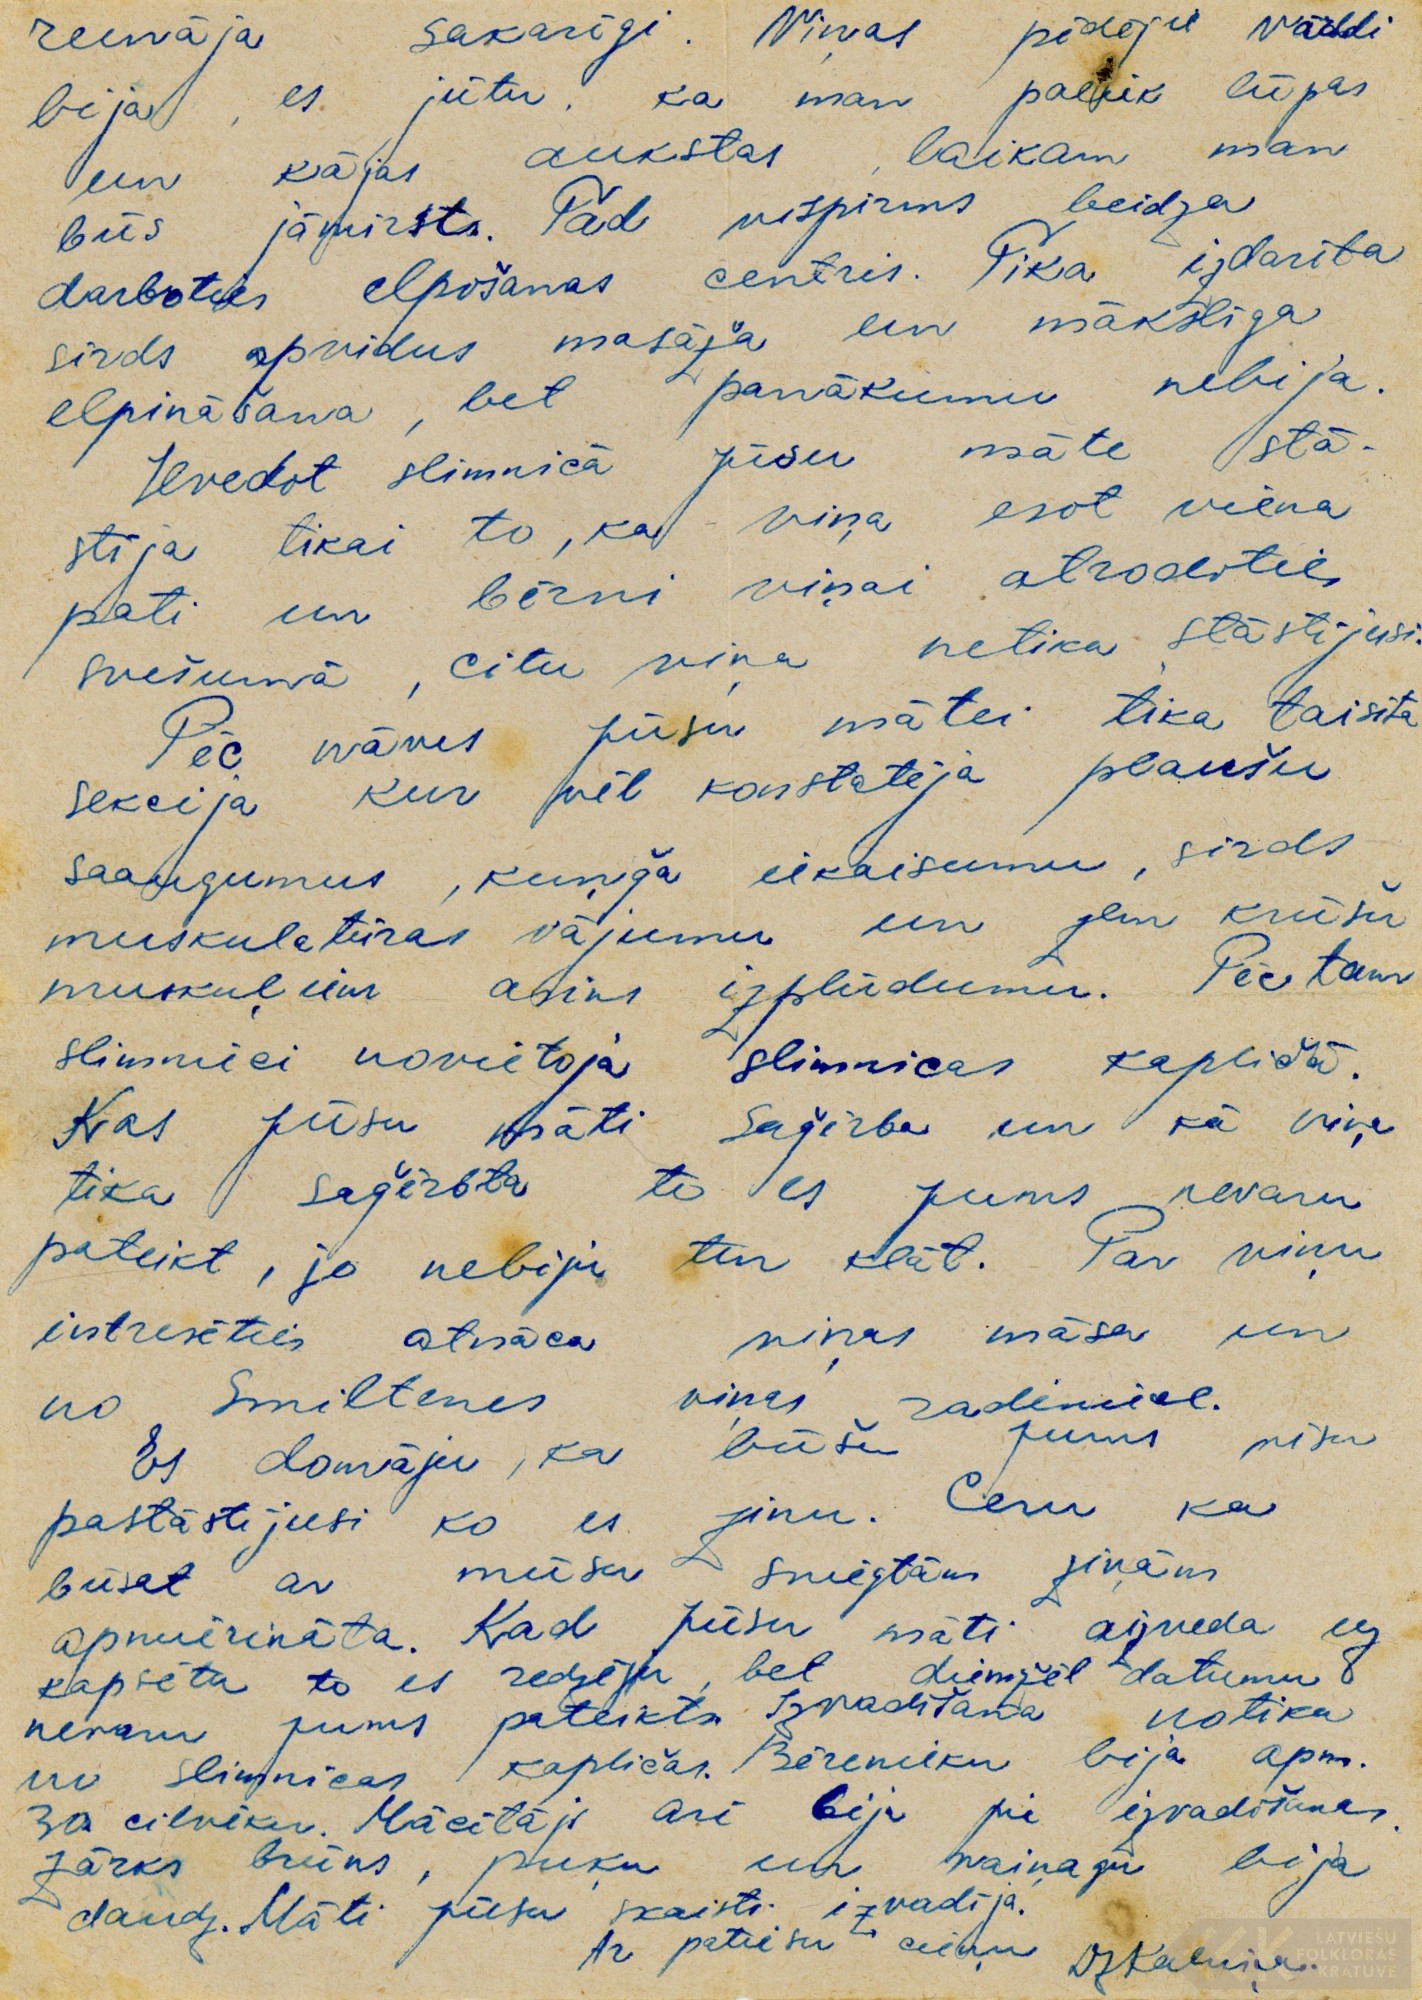 runāja sakarīgi. Viņas pēdējie vārdi
bija, es jūtu, ka man paliik lūpas
un kājas aukstas, laikam man
būs jāmirst. Tad vispirms beidza
darboties elpošanas centris. Tika izdarīta
sirds apvidus masāža un mākslīga
elpināšana, bet panākumu nebija.
Ievedot slimnicā jūsu māte stā-
stīja tikai to, ka viņa esot viena
pati un bērni viņai atrodoties
svešumā, citu viņa netika stāstījusi.
Pēc nāves jūsu mātei tika taisīta
sekcija kur vēl konstatēja plaušu
saaugumus, kuņģa iekaisumu, sirds
muskulatūras vājumu un zem krūšu
muskuļiem asins izplūdumu. Pēc tam
slimnieci novietoja slimnicas kapličā.
Kas jūsu māti saģērba un kā viņa
tika saģērbta to es jums nevaru
pateikt, jo nebiju tur klāt. Par viņu
intresēties atnāca viņas māsa un
no Smiltenes viņas radiniece.
Es domāju, ka būšu jums visu
pastāstījusi ko es zinu. Ceru ka
būsat ar mūsu sniegtām ziņām
apmierināta. Kad jūsu māti aizveda uz
kapsētu to es redzēju, bet diemžēl datumu
nevaru jums pateikt. Izvadīšana notika
no slimnicas kapličas. Bērenieku bija apm.
30 cilvēku. Mācītājs arī bija pie izvadīšanas.
Zārks brūns, puķu un vaiņagu bija
daudz. Māti jūsu skaisti izvadīja.
Ar patiesu cieņu Dz Kalniņa.
LATVIEŠU
FOLKLORAS
KRĀTUVE